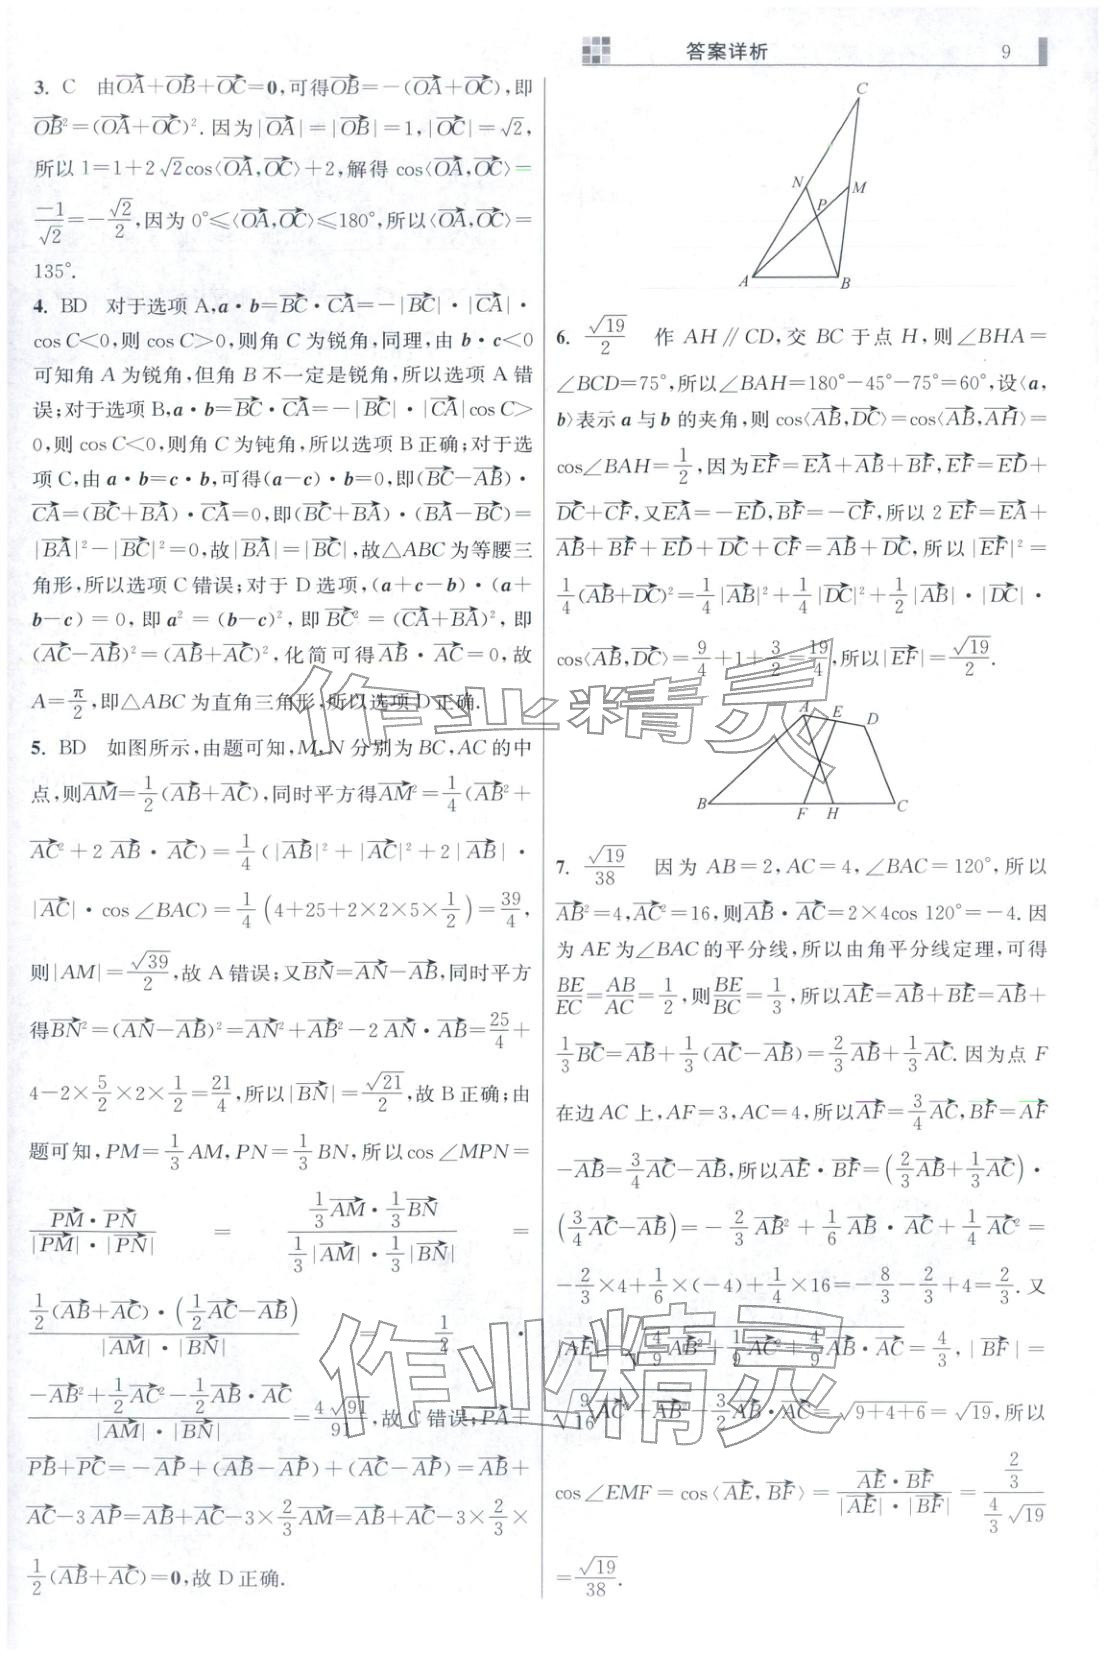 答案详析 9
3. C 由OA+OB+OC=0,可得OB=-(OA+OC),即
OB²=(OA+OC)².因为|OA|=|OB|=1,|OC|=√2,
所以1=1+2√2cos⟨OA,OC⟩+2,解得 cos⟨OA,OC⟩=
-1/√2=-√2/2,因为0°≤⟨OA,OC⟩≤180°,所以⟨OA,OC⟩=
135°.
4. BD 对于选项A,a·b=BC·CA=-|BC|·|CA|·
cos C<0,则 cos C>0,则角C为锐角,同理,由 b·c<0
可知角A为锐角,但角B不一定是锐角,所以选项A错
误;对于选项B,a·b=BC·CA=-|BC|·|CA|cos C>
0,则 cos C<0,则角C为钝角,所以选项B正确;对于选
项C,由 a·b=c·b,可得(a-c)·b=0,即(BC-AB)·
CA=(BC+BA)·CA=0,即(BC+BA)·(BA-BC)=
|BA|²-|BC|²=0,故|BA|=|BC|,故△ABC为等腰三
角形,所以选项C错误;对于D选项,(a+c-b)·(a+
b-c)=0,即a²=(b-c)²,即BC²=(CA+BA)²,即
(AC-AB)²=(AB+AC)²,化简可得AB·AC=0,故
A=π/2,即△ABC为直角三角形,所以选项D正确.
5. BD 如图所示,由题可知,M,N分别为BC,AC的中
点,则AM=1/2(AB+AC),同时平方得AM²=1/4(AB²+
AC²+2AB·AC)=1/4(|AB|²+|AC|²+2|AB|·
|AC|·cos∠BAC)=1/4(4+25+2×2×5×1/2)=39/4,
则|AM|=√39/2,故A错误;又BN=AN-AB,同时平方
得BN²=(AN-AB)²=AN²+AB²-2AN·AB=25/4+
4-2×5/2×2×1/2=21/4,所以|BN|=√21/2,故B正确;由
题可知,PM=1/3AM,PN=1/3BN,所以cos∠MPN=
PM·PN/(|PM|·|PN|) = (1/3AM·1/3BN)/(1/3|AM|·1/3|BN|) =
(1/2(AB+AC)·(1/2AC-AB))/(|AM|·|BN|) = 1/2 ·
(-AB²+1/2AC²-1/2AB·AC)/(|AM|·|BN|)=4√91/91,故C错误;PA+
PB+PC=-AP+(AB-AP)+(AC-AP)=AB+
AC-3AP=AB+AC-3×2/3AM=AB+AC-3×2/3×
1/2(AB+AC)=0,故D正确.
C
N
M
P
A
B
6. √19/2 作AH∥CD,交BC于点H,则∠BHA=
∠BCD=75°,所以∠BAH=180°-45°-75°=60°,设⟨a,
b⟩表示a与b的夹角,则 cos⟨AB,DC⟩=cos⟨AB,AH⟩=
cos∠BAH=1/2,因为EF=EA+AB+BF,EF=ED+
DC+CF,又EA=-ED,BF=-CF,所以2EF=EA+
AB+BF+ED+DC+CF=AB+DC,所以|EF|²=
1/4(AB+DC)²=1/4|AB|²+1/4|DC|²+1/2|AB|·|DC|·
cos⟨AB,DC⟩=9/4+1+3/2=19/4,所以|EF|=√19/2.
A
E
D
B
F
H
C
7. √19/38 因为AB=2,AC=4,∠BAC=120°,所以
AB²=4,AC²=16,则AB·AC=2×4cos 120°=-4.因
为AE为∠BAC的平分线,所以由角平分线定理,可得
BE/EC=AB/AC=1/2,则BE/BC=1/3,所以AE=AB+BE=AB+
1/3BC=AB+1/3(AC-AB)=2/3AB+1/3AC.因为点F
在边AC上,AF=3,AC=4,所以AF=3/4AC,BF=AF
-AB=3/4AC-AB,所以AE·BF=(2/3AB+1/3AC)·
(3/4AC-AB)=-2/3AB²+1/6AB·AC+1/4AC²=
-2/3×4+1/6×(-4)+1/4×16=-8/3-2/3+4=2/3.又
|AE|=√(4/9AB²+1/9AC²+4/9AB·AC)=4/3,|BF|=
√(9/16AC²+AB²-3/2AB·AC)=√(9+4+6)=√19,所以
cos∠EMF=cos⟨AE,BF⟩=AE·BF/(|AE|·|BF|)=(2/3)/(4/3√19)
=√19/38.
作业精灵
作业精灵